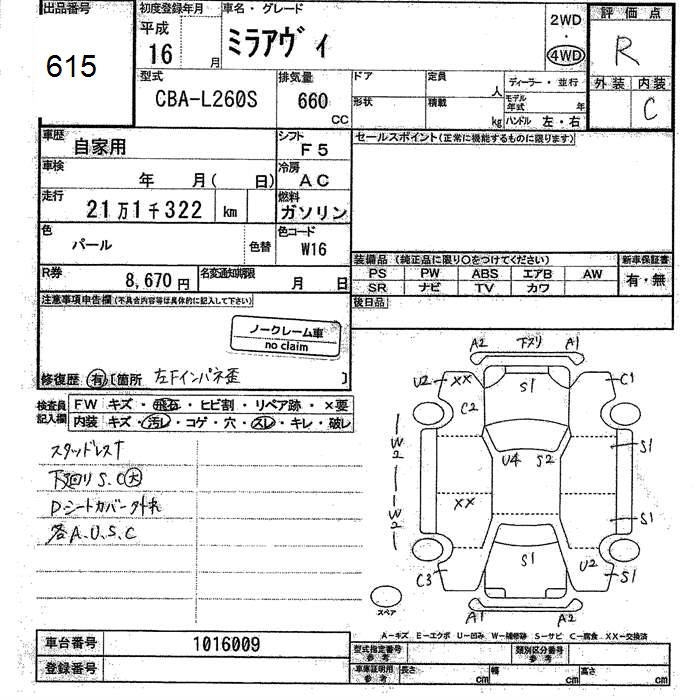 出品番号
615
初度登録年月
平成
16
月
車名・グレード
ミラアヴィ
2WD
・
4WD
評価点
R
外装 内装
C
型式
CBA-L260S
排気量
660
CC
ドア
定員
人
ディーラー・並行
形状
積載
kg
モデル年式
年
ハンドル 左・右
車歴
自家用
シフト
F5
セールスポイント(正常に機能するものに限ります)
車検
年 月( 日)
冷房
AC
走行
21万1千322
km
燃料
ガソリン
色
パール
色替
色コード
W16
装備品 (純正品に限り○をつけてください)
新車保証書
PS PW ABS エアB AW
有・無
SR ナビ TV カワ
後日品
R券
8,670円
名変通知期限
月 日
注意事項申告欄(不具合内容等は具体的に記入して下さい)
ノークレーム車
no claim
修復歴 有 〔箇所 左Fインパネ歪 〕
検査員記入欄
FW キズ・飛石・ヒビ割・リペア跡・×要
内装 キズ・汚レ・コゲ・穴・スレ・キレ・破レ
スタッドレス
下廻りS.C大
D-シートカバー外れ
各A.U.S.C
A2 下スリ A1
U2 XX S1 C1
C2
W2 U4 S2 S1
XX
W2 S1
S1 U2
C3 S1
スペア
A1 A2
A-キズ E-エクボ U-凹み W-補修跡 S-サビ C-腐食 XX-交換済
車台番号
1016009
登録番号
型式指定番号
参考
類別区分番号
参考
車庫証明用
参考
長さ
cm
幅
cm
高さ
cm